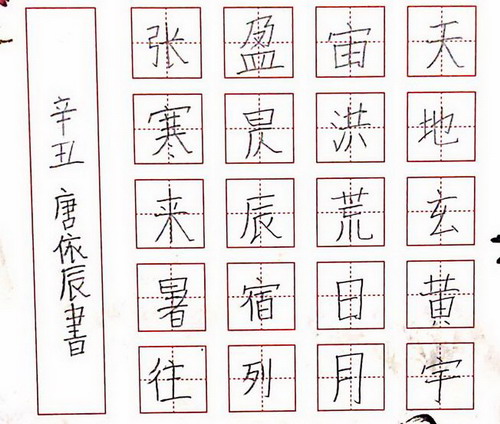 天地玄黄宇
宙洪荒日月
盈昃辰宿列
张寒来暑往
辛丑 唐依辰書